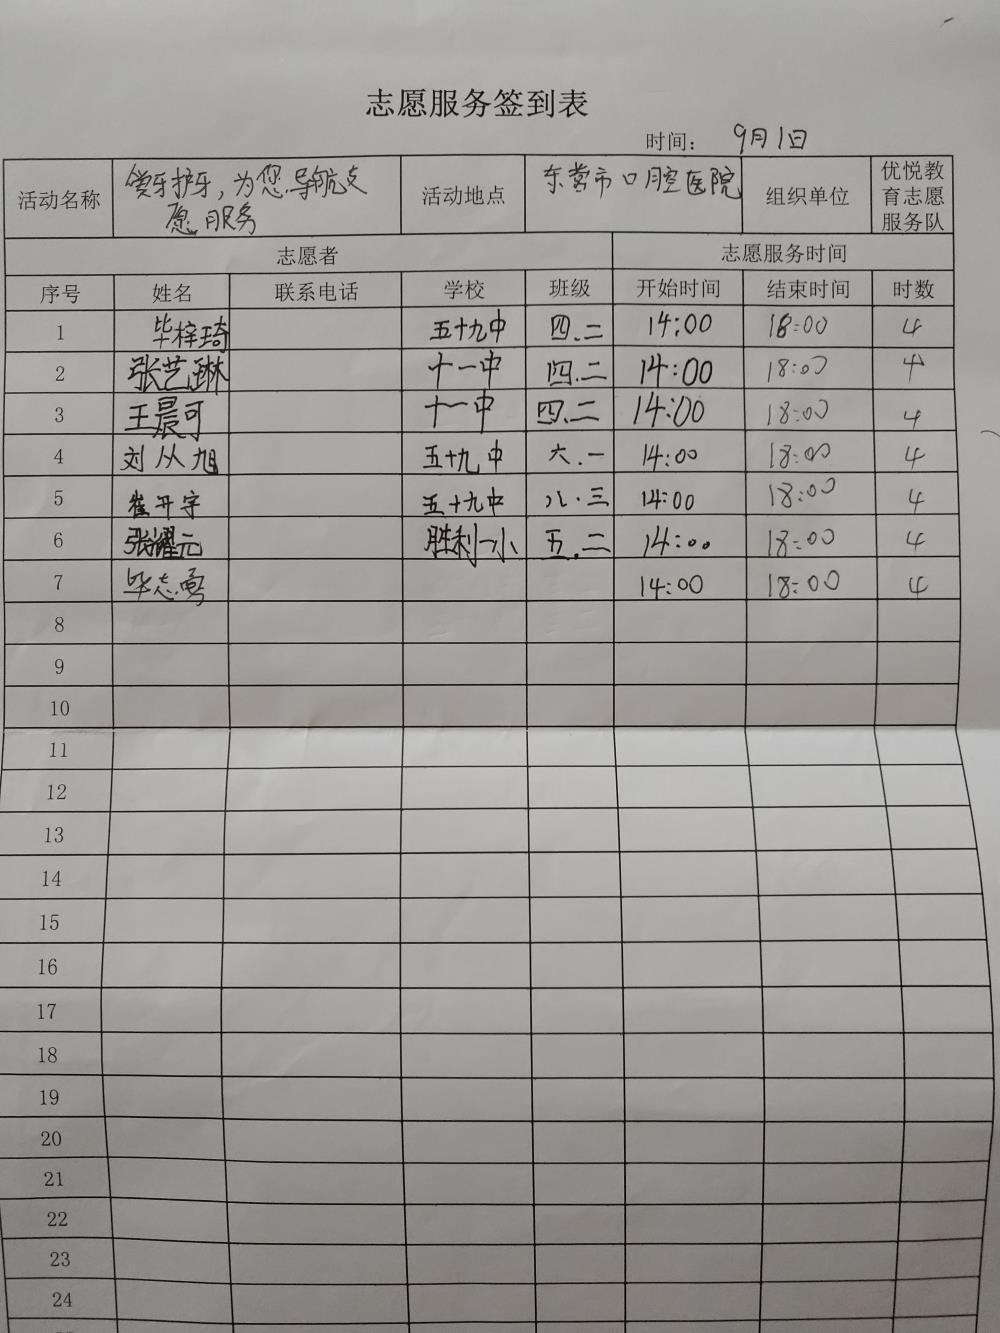 志愿服务签到表
时间： 9月1日
活动名称 爱牙护牙，为您导航志愿服务 活动地点 东营市口腔医院 组织单位 优悦教育志愿服务队
志愿者 志愿服务时间
序号 姓名 联系电话 学校 班级 开始时间 结束时间 时数
1 毕梓琦 五十九中 四.二 14:00 18:00 4
2 张艺琳 十一中 四.二 14:00 18:00 4
3 王晨可 十一中 四.二 14:00 18:00 4
4 刘从旭 五十九中 六.一 14:00 18:00 4
5 崔开宇 五十九中 八.三 14:00 18:00 4
6 张耀元 胜利一小 五.二 14:00 18:00 4
7 毕志勇 14:00 18:00 4
8
9
10
11
12
13
14
15
16
17
18
19
20
21
22
23
24